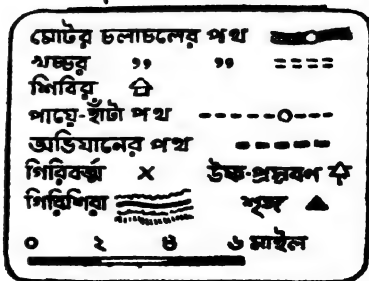 মোটর চলাচলের পথ
খচ্চর " "
শিবির
পায়ে-হাঁটা পথ
অভিযানের পথ
গিরিবর্ত্ম × উষ্ণ-প্রস্রবণ
গিরিশিরা শৃঙ্গ
০ ২ ৪ ৬ মাইল